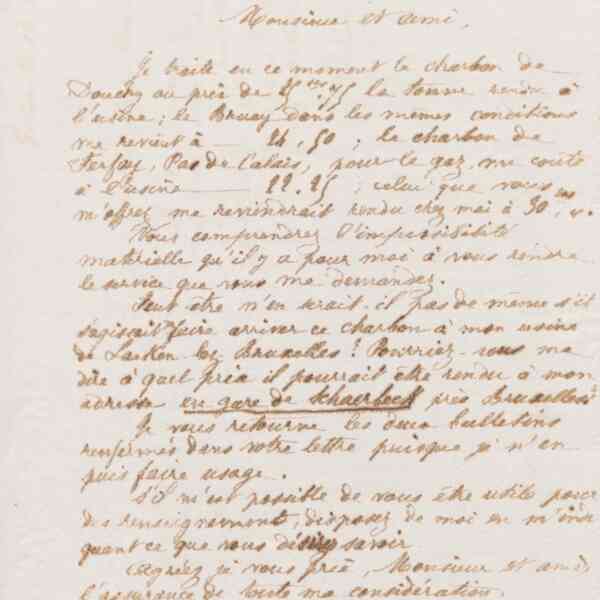 Monsieur et ami,
Je traite en ce moment le charbon de
Douchy au prix de 25 frs 75 la tonne rendu à
l'usine ; le Bruay dans les mêmes conditions
me revient à — 24,50 ; le charbon de
Ferfay, Pas de Calais, pour le gaz, me coûte
à l'usine — 22.25 ; celui que vous
m'offrez me reviendrait rendu chez moi à 30
Vous comprendrez l'impossibilité
matérielle qu'il y a pour moi à vous rendre
le service que vous me demandez.
Peut être n'en serait-il pas de même s'il
s'agissait faire arriver ce charbon à mon usine
de Laeken lez Bruxelles ? Pourriez-vous me
dire à quel prix il pourrait être rendu à mon
adresse en gare de Schaerbeek près Bruxelles ?
Je vous retourne les deux bulletins
renfermés dans votre lettre puisque je n'en
puis faire usage.
S'il m'est possible de vous être utile pour
des renseignements, disposez de moi en m'indi
quant ce que vous désirez savoir
Agréez je vous prie, Monsieur et ami,
l'assurance de toute ma considération.